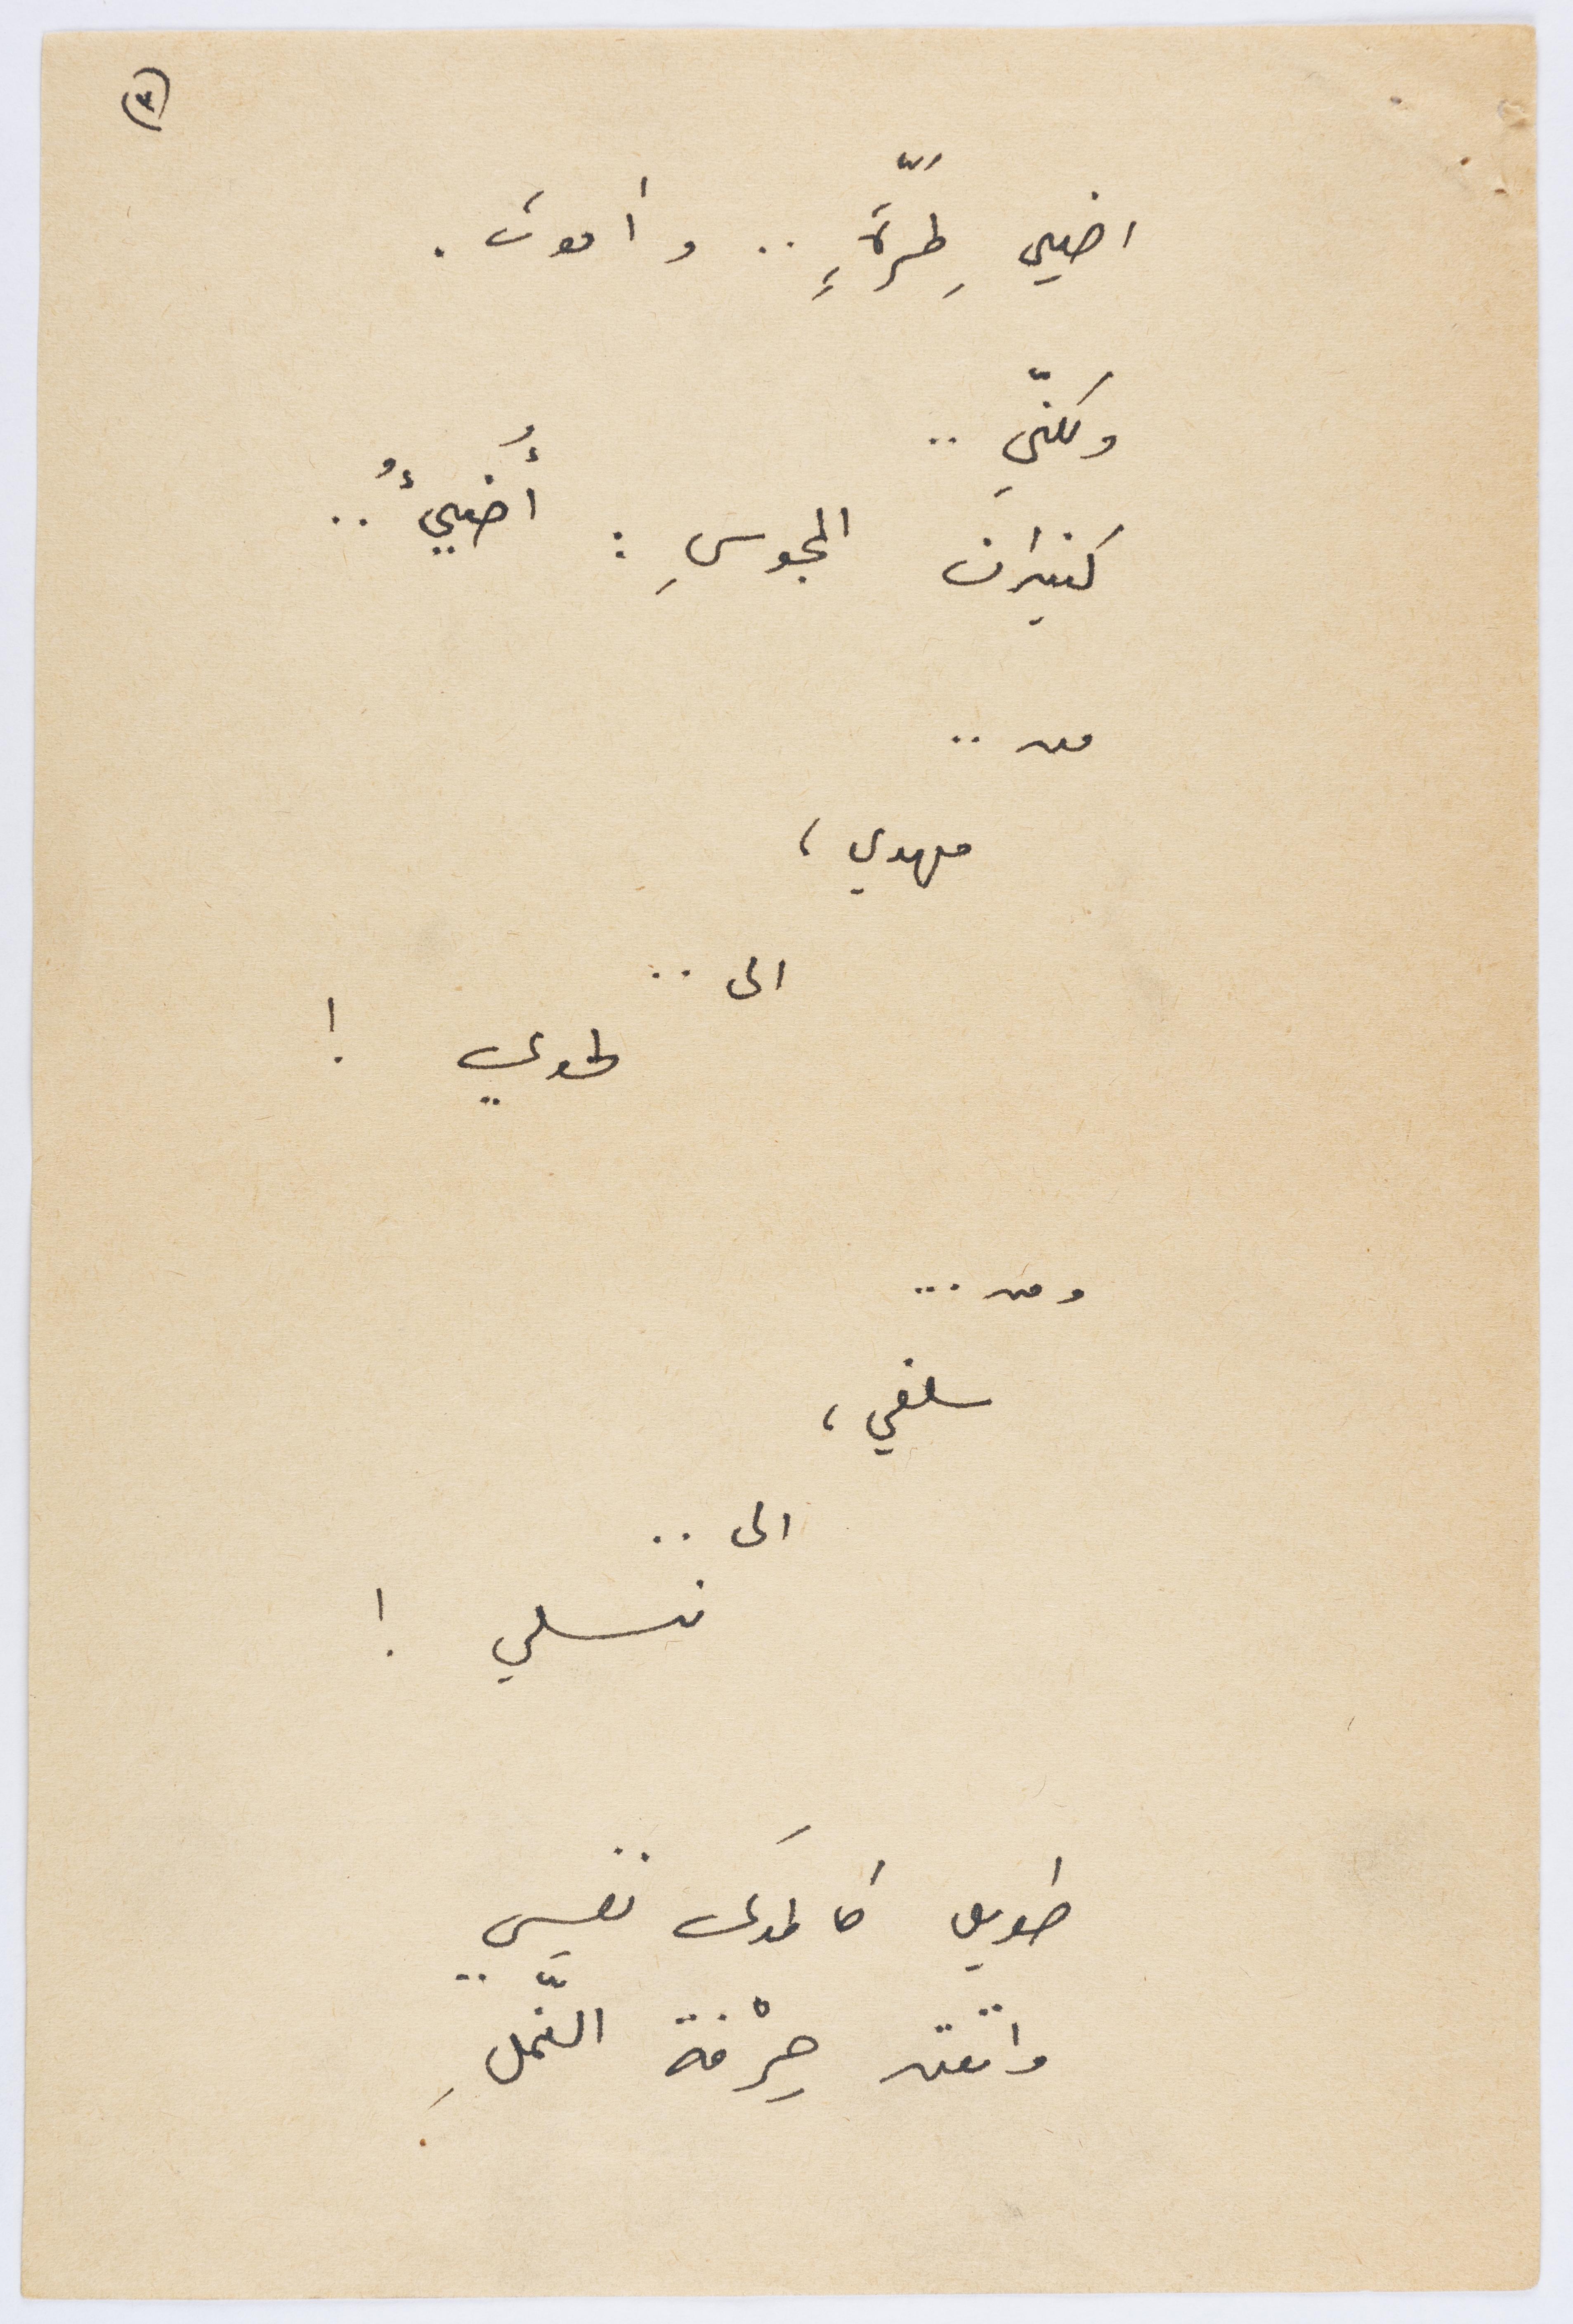 (٣)
اضيئ لِمَرَّةٍ .. وأموتُ .
ولكنّي ..
كنيران المجوسِ : أُضيئُ ..
من ..
مهدي ،
الى ..
لحدي !
ومن ...
سلفي ،
الى ..
نسلي !
طويل كالمدى نفَسي ..
واتقن حِرْفة النّملِ